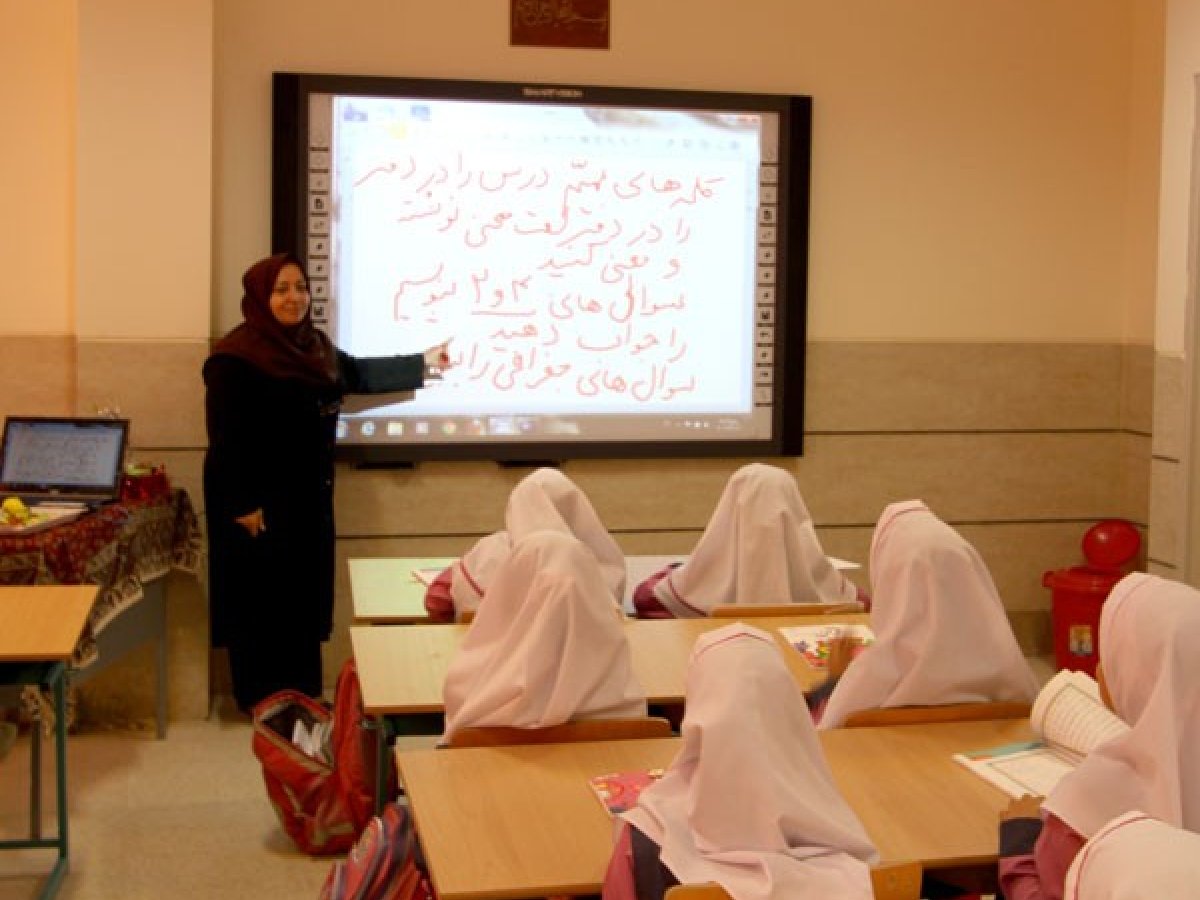 SMART VISION
کلمه های مهم درس را در دفتر
را در دفتر لغت معنی نوشته
و معنی کنید
سوال های ۲ و ۳ بنویسیم
را جواب دهید
سوال های جغرافی را